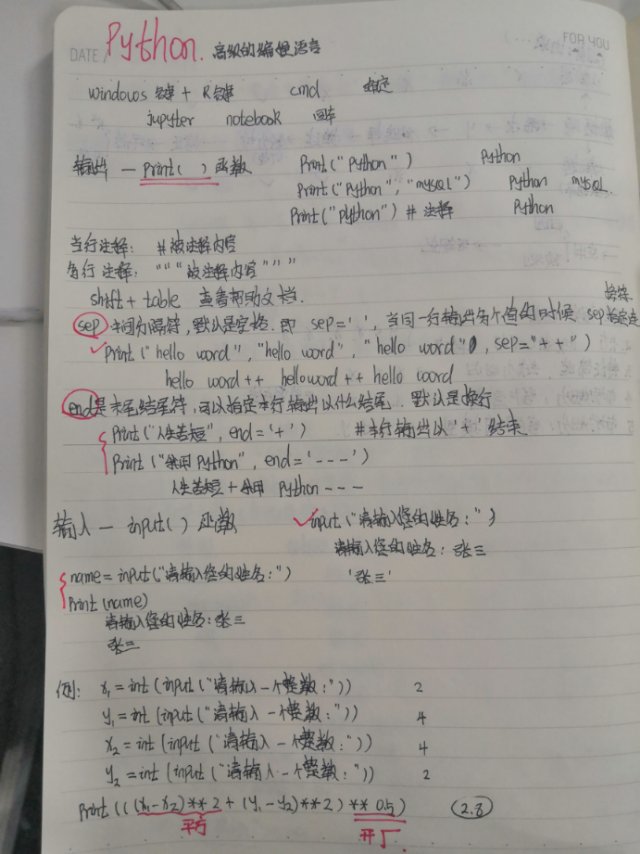 DATE / Python. 高级的编程语言 FOR YOU
windows 键 + R键 cmd 确定
jupyter notebook 回车
输出 — Print( ) 函数 Print("Python") Python
Print("Python", "mysql") Python mysql
Print("python") # 注释 Python
当行注释: # 被注释内容
多行注释: """被注释内容"""
shift + table 查看帮助文档.
sep 中间分隔符, 默认是空格. 即 sep=' ', 当同一行输出多个值的时候 sep指定
✓ Print ("hello word", "hello word", "hello word", sep="++")
hello word ++ hello word ++ hello word
end是末尾结尾符, 可以指定本行输出以什么结尾. 默认是换行
Print("人生苦短", end='+') #本行输出以'+'结束
Print("我用Python", end='---')
人生苦短+我用 Python ---
输入 — input() 函数 ✓ input("请输入您的姓名:")
请输入您的姓名: 张三
name = input("请输入您的姓名:") '张三'
Print(name)
请输入您的姓名: 张三
张三
例: x₁ = int (input ("请输入一个整数:")) 2
y₁ = int (input ("请输入一个整数:")) 4
x₂ = int (input ("请输入一个整数:")) 4
y₂ = int (input ("请输入一个整数:")) 2
Print(((x₁-x₂)**2 + (y₁-y₂)**2) ** 0.5) 2.8
平方 开√